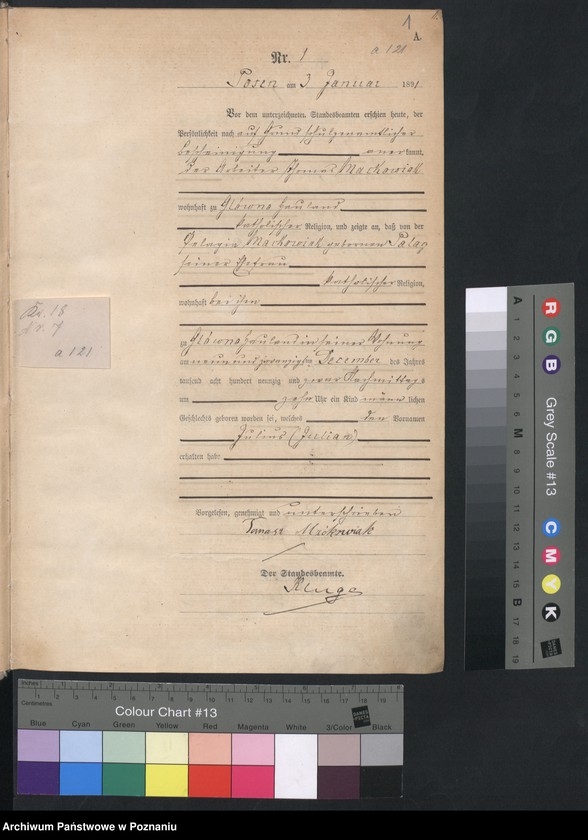 1
A.
a 121
Nr. 1
Posen am 3 Januar 1891
Vor dem unterzeichneten Standesbeamten erschien heute, der
Persönlichkeit nach auf Grund schulzenamtlicher
Bescheinigung anerkannt,
der Arbeiter Thomas Mackowiak
wohnhaft zu Glówno Hauland
katholischer Religion, und zeigte an, daß von der
Pelagia Mackowiak geborenen
seiner Ehefrau
katholischer Religion,
wohnhaft bei ihm
zu Glówno Hauland in seiner Wohnung
am neun und zwanzigsten December des Jahres
tausend acht hundert neunzig und zwar Nachmittags
um zehn Uhr ein Kind männlichen
Geschlechts geboren worden sei, welches den Vornamen
Julius (Julian)
erhalten habe
Vorgelesen, genehmigt und unterschrieben
Tomasz Maćkowiak
Der Standesbeamte.
Kluge
Nr. 7
a 121
Colour Chart #13
Blue Cyan Green Yellow Red Magenta White 3/Color Black
Inches
Centimetres
DANES PICTA
Grey Scale #13
R G B C M Y K
A 1 2 3 4 5 6 M 8 9 10 11 12 13 14 15 B 17 18 19
Archiwum Państwowe w Poznaniu